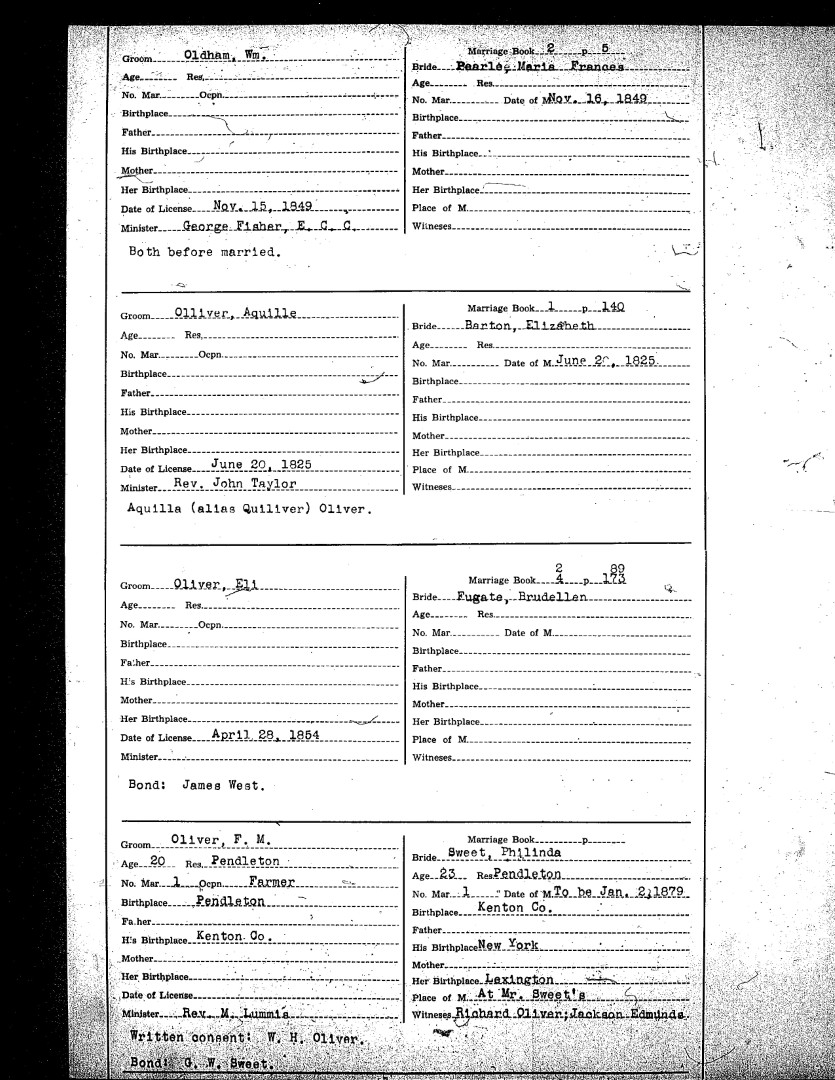 Groom Oldham, Wm.
Age Res.
No. Mar. Ocpn.
Birthplace
Father
His Birthplace
Mother
Her Birthplace
Date of License Nov. 15, 1849
Minister George Fisher, E. C. C.
Marriage Book 2 p 5
Bride Pearle, Maria Frances
Age Res.
No. Mar. Date of M. Nov. 16, 1849
Birthplace
Father
His Birthplace
Mother
Her Birthplace
Place of M.
Witneses
Both before married.
Groom Olliver, Aquille
Age Res.
No. Mar. Ocpn.
Birthplace
Father
His Birthplace
Mother
Her Birthplace
Date of License June 20, 1825
Minister Rev. John Taylor
Marriage Book 1 p 140
Bride Barton, Elizabeth
Age Res.
No. Mar. Date of M. June 20, 1825
Birthplace
Father
His Birthplace
Mother
Her Birthplace
Place of M.
Witneses
Aquilla (alias Quiliver) Oliver.
Groom Oliver, Eli
Age Res.
No. Mar. Ocpn.
Birthplace
Father
His Birthplace
Mother
Her Birthplace
Date of License April 28, 1854
Minister
2 89
Marriage Book 4 p 173
Bride Fugate, Brudellen
Age Res.
No. Mar. Date of M.
Birthplace
Father
His Birthplace
Mother
Her Birthplace
Place of M.
Witneses
Bond: James West.
Groom Oliver, F. M.
Age 20 Res. Pendleton
No. Mar 1 Ocpn. Farmer
Birthplace Pendleton
Father
His Birthplace Kenton Co.
Mother
Her Birthplace
Date of License
Minister Rev. M. Lummis
Marriage Book p
Bride Sweet, Philinda
Age 23 Res Pendleton
No. Mar. 1 " Date of M. To be Jan. 2, 1879
Birthplace Kenton Co.
Father
His Birthplace New York
Mother
Her Birthplace Lexington
Place of M. At Mr. Sweet's
Witneses Richard Oliver; Jackson Edmunds.
Written consent: W. H. Oliver.
Bond: G. W. Sweet.